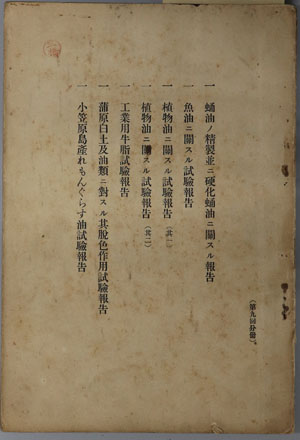 （第九回分册）
一 蛹油ノ精製並ニ硬化蛹油ニ關スル報告
一 魚油ニ關スル試驗報告
一 植物油ニ關スル試驗報告（其一）
一 植物油ニ關スル試驗報告（其二）
一 工業用牛脂試驗報告
一 蒲原白土及油類ニ對スル其脫色作用試驗報告
一 小笠原島產れもんぐらす油試驗報告